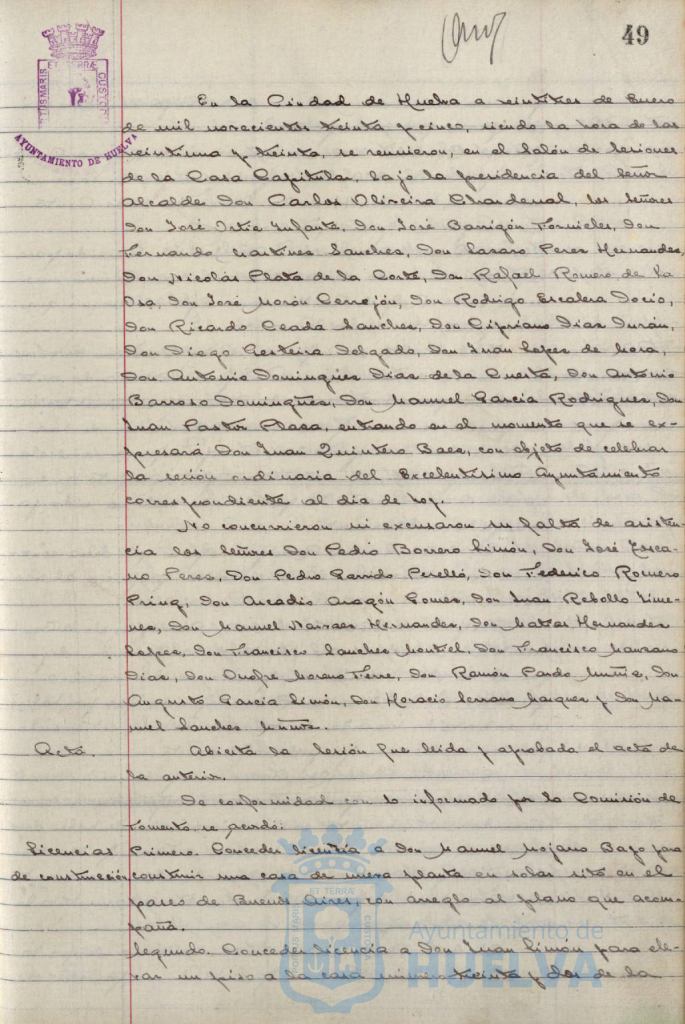 49
ET TERRÆ
PORTUSMARIS
CUSTODIA
AYUNTAMIENTO DE HUELVA
En la Ciudad de Huelva a veintitres de Enero
de mil novecientos treinta y cinco, siendo la hora de las
veintiuna y treinta, se reunieron, en el Salón de Sesiones
de la Casa Capitular, bajo la presidencia del Señor
Alcalde Don Carlos Oliveira Chardenal, los Señores
Don José Ortiz Infante, Don José Barrigón Fornieles, Don
Fernando Martinez Sanchez, Don Lazaro Perez Hernandez,
Don Nicolás Plata de la Corte, Don Rafael Romero de la
Osa, Don José Morón Cerrejón, Don Rodrigo Escalera Docio,
Don Ricardo Ceada Sanchez, Don Cipriano Dias Durán,
Don Diego Gesteira Delgado, Don Juan Lopez de Mora,
Don Antonio Dominguez Dias de la Cuesta, Don Antonio
Barroso Dominguez, Don Manuel Garcia Rodriguez, Don
Juan Pastor Plaza, entrando en el momento que se ex-
presará Don Juan Quintero Baez, con objeto de celebrar
la sesión ordinaria del Excelentísimo Ayuntamiento
correspondiente al dia de hoy.
No concurrieron ni excusaron su falta de asisten-
cia los Señores Don Pedro Borrero Limón, Don José Tosca-
no Perez, Don Pedro Garrido Perelló, Don Federico Romero
Don Arcadio Aragón Gomez, Don Juan Rebollo Jime-
nez, Don Manuel Narvaez Hernandez, Don Matias Hernandez
Lopez, Don Francisco Sanchez Montiel, Don Francisco Manzano
Dias, Don Onofre Moreno Ferre, Don Ramón Pardo Muñiz, Don
Augusto Garcia Limón, Don Horacio Serrano Marquez y Don Ma-
nuel Sanchez
Acta. Abierta la Sesión fue leida y aprobada el acta de
la anterior.
De conformidad con lo informado por la Comisión de
Fomento, se acordó:
Licencias Primero. Conceder licencia a Don Manuel Mojarro Bayo para
de construcción construir una casa de nueva planta en solar sito en el
paseo de Buenos Aires, con arreglo al plano que acom-
paña.
Segundo. Conceder licencia a Don Juan Limón para ele-
var un piso a la casa número treinta y dos de la
Ayuntamiento de
HUELVA